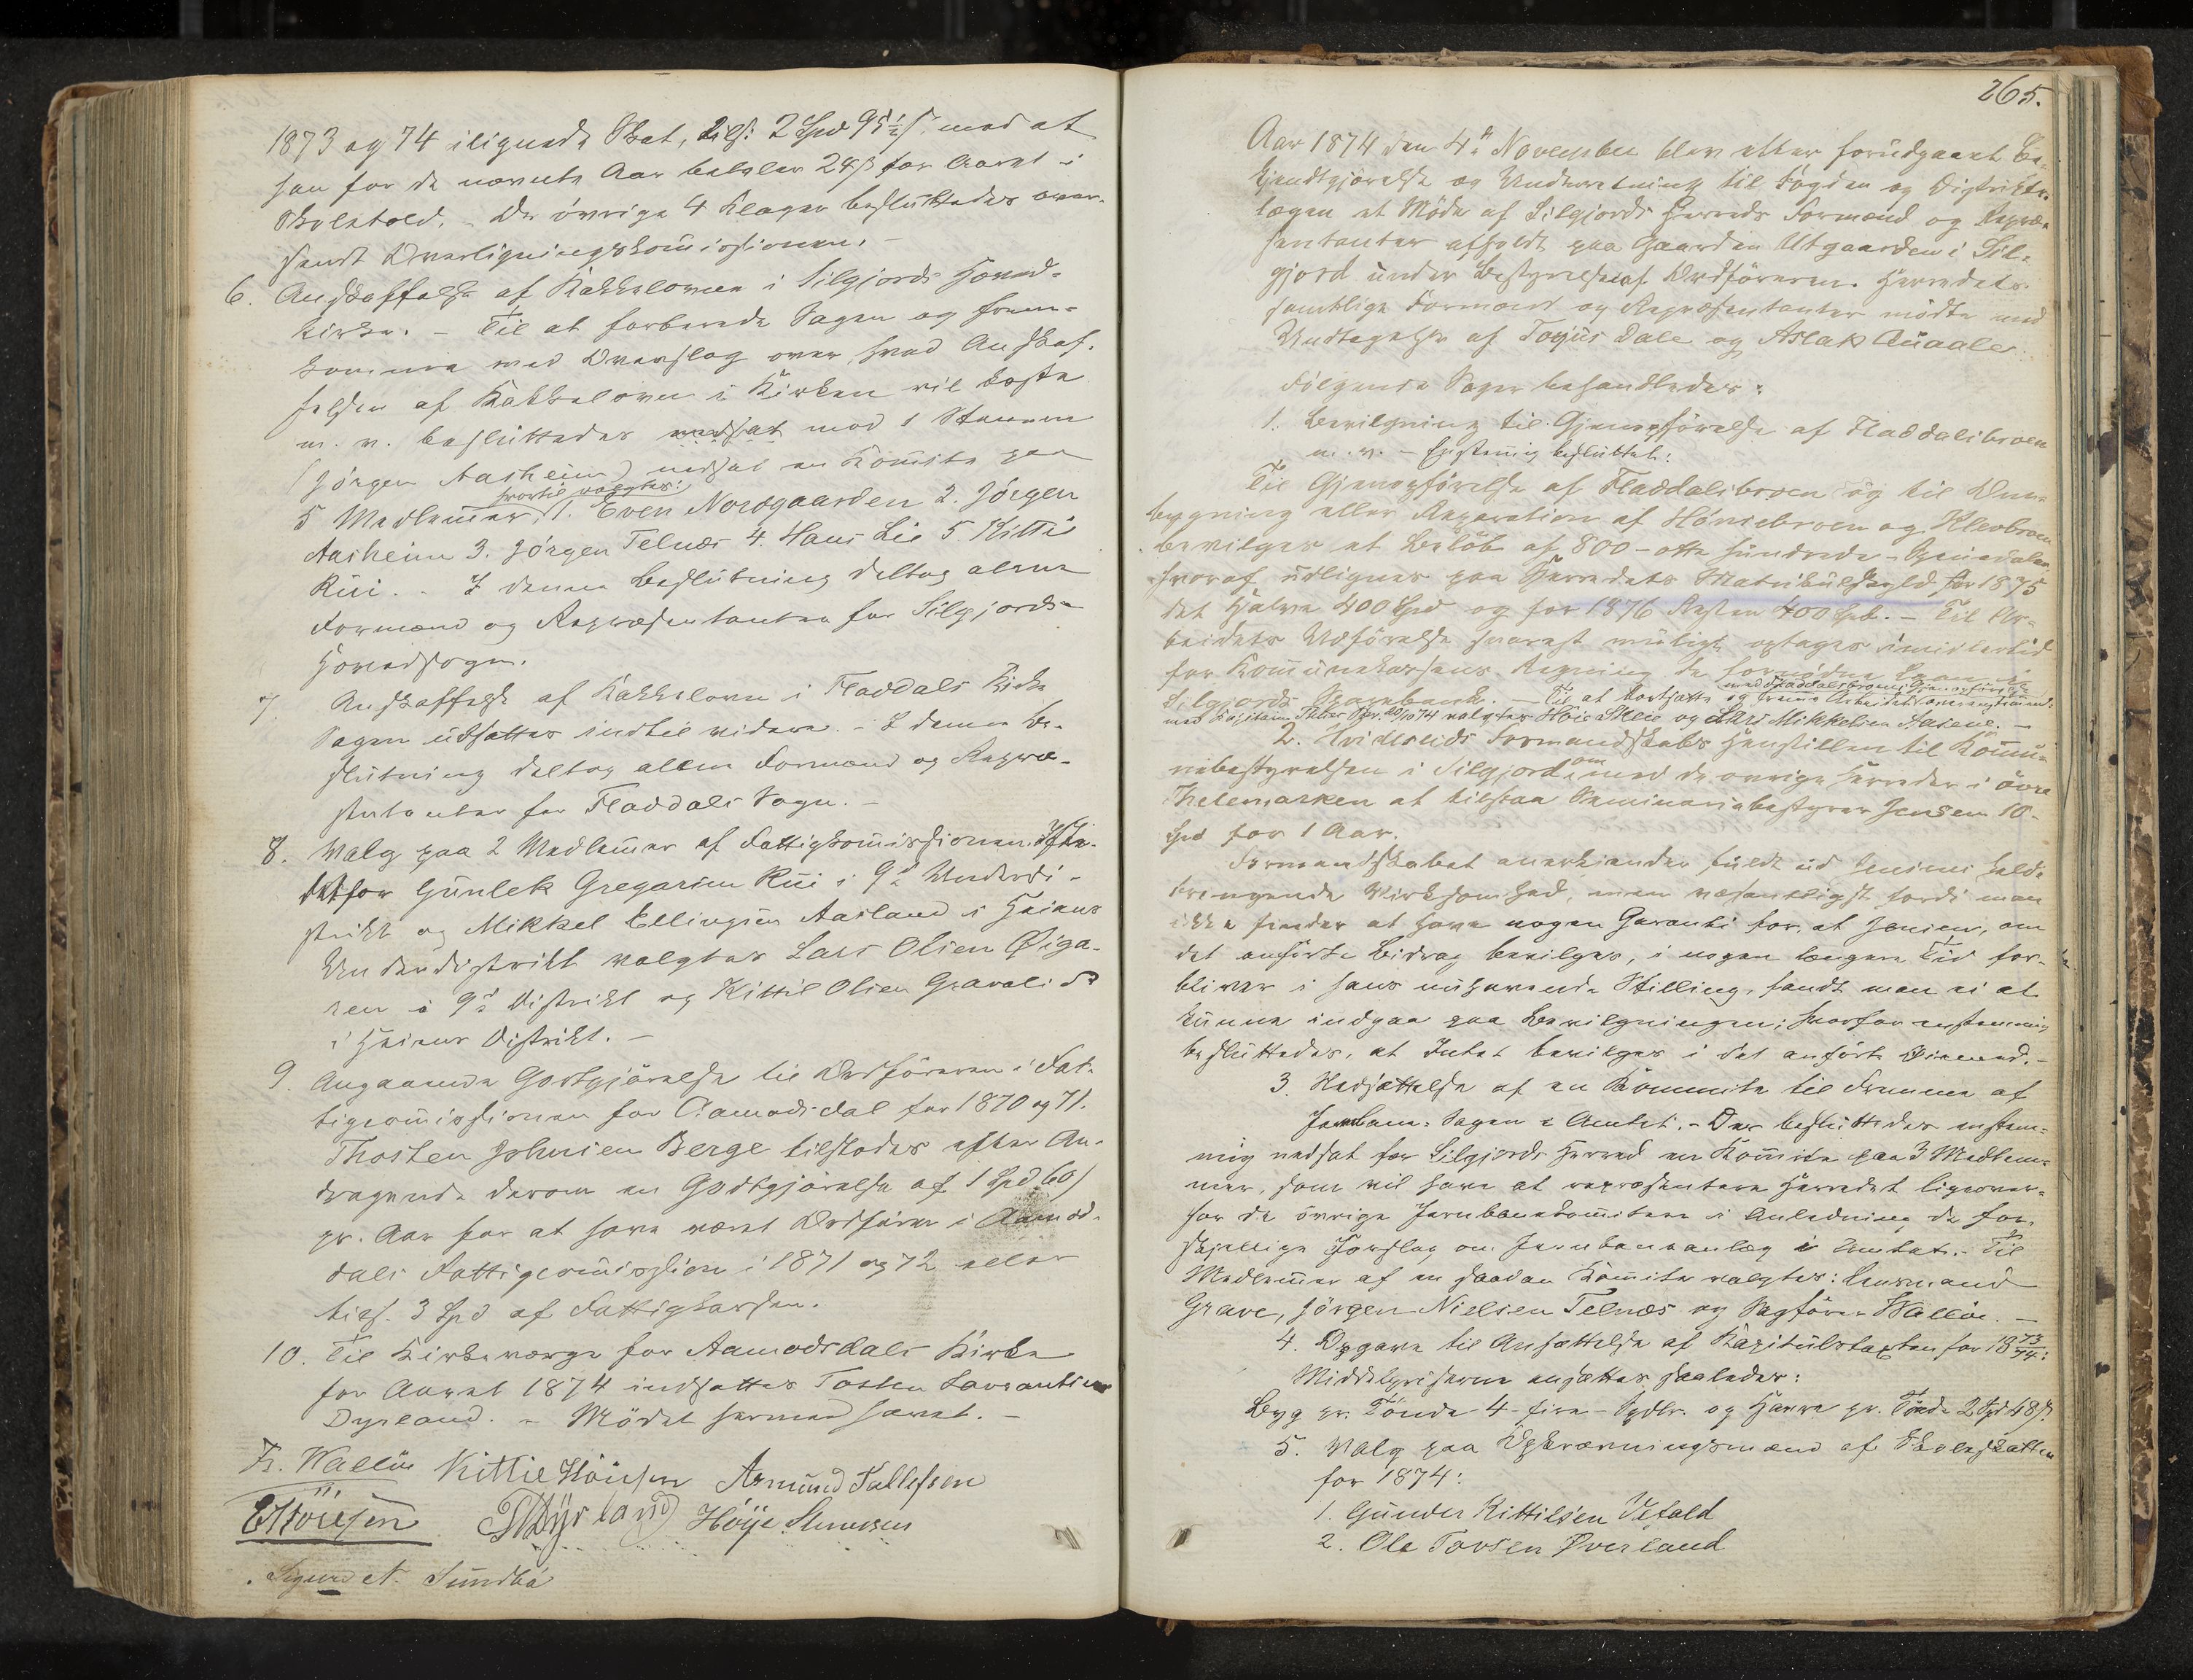 1873 og 74 ilignede Skat, tils: 2 Spd 95½ s. mod at
han for de nævnte Aar betaler 24 s for Aaret i
Skoletold. - De övrige 4 Klager besluttedes over-
sendt Overligningskommissionen. -
6. Anskaffelse af Kakkelovne i Silgjords Hoved-
kirke. - Til at forberede Sagen og frem-
komme med Overslag over, hvad Anskaf-
felsen af Kakkelovne i Kirken vil koste
m. v. besluttedes mod 1 Stemme
(Jörgen Aasheim) nedsat en Komite paa
hvortil valgtes:
5 Medlemmer, 1. Even Nordgaarden 2. Jörgen
Aasheim 3. Jörgen Telnæs 4. Hans Lie 5. Kittil
Rui. - I denne Beslutning deltog alene
Formænd og Repræsentanter for Silgjords
Hovedsogn.
7. Anskaffelse af Kakkelovne i Fladdals Kirke
Sagen udsattes indtil videre. - I denne Be-
slutning deltog allene Formænd og Repræ-
sentanter for Fladdals Sogn. -
8. Valg paa 2 Medlemmer af Fattigkommissionen. Iste-
detfor Gunlek Gregarsen Rui i 9de Underdi-
strikt og Mikkel Ellingsen Aasland i
Underdistrikt valgtes Lars Olsen Øiga-
ren i 9de Distrikt og Kittil Olsen Gravalid
i Distrikt. -
9. Angaaende Godtgjörelse til Ordföreren i Fat-
tigcommissionen for Aamodsdal for 1870 og 71.
Thosten Johnsen Berge tilstodes efter An-
dragende derom en Godtgjörelse af 1 Spd 60 s
pr. Aar for at have været Ordförer i Aamods-
dals Fattigcommission i 1871 og 72 eller
tils. 3 Spd af Fattigkassen.
10. Til Kirkeværge for Aamodsdals Kirke
for Aaret 1874 indsattes Tosten Lavrantsen
Dyrland. - Mödet hermed hævet. -
Fr. Wallöe Kittil Höiesen Asmund Tallefsen
E Höiesen T Dyrland Höye Stenersen
Sigurd A. Sundbö
265.
Aar 1874 den 4de November blev efter forudgaaet Be-
kjendtgjörelse og Underretning til Fogden og Distrikts-
lægen et Möde af Silgjords Herreds Formænd og Repræ-
sentanter afholdt paa Gaarden Utgaarden i Sil-
gjord under Bestyrelse af Ordföreren. Herredets
samtlige Formænd og Repræsentanter mödte med
Undtagelse af Tarjus Dale og Aslak Aaale.
Fölgende Sager behandledes:
1. Bevilgning til Gjenopförelse af Fladdalsbroen
m. v. - Enstemig besluttet:
Til Gjenopförelse af Fladdalsbroen og til Om-
bygning eller Reparation af Hönsebroen og Klevbroen
bevilges et Belöb af 800 - otte hundrede - Speciedaler
hvoraf udlignes paa Herredets Matrikulskyld for 1875
det Halve 400 Spd og for 1876 Resten 400 Spd. - Til Ar-
beidets Udförelse snarest muligt optages imidlertid
for Kommunekassens Regning de fornödne
Silgjords Sparebank. - Til at fortsætte og
med Fladdalsbroens Gjenopförelse
valgtes Höie Skeie og Lars Mikkelsen Aasene. -
2. Hvideseids Formandskabs Henstillen til Kommu-
nebestyrelsen i Silgjord om med de övrige Herreder i övre
Thelemarken at tilstaa Seminariebestyrer Jensen 10
Spd for 1 Aar.
Formandskabet anerkjender fuldt ud Jensens held-
bringende Virksomhed, men væsentligst fordi man
ikke finder at have nogen Garanti for, at Jensen, om
det anförte Bidrag bevilges, i nogen længere Tid for-
bliver i hans nuhavende Stilling, fandt man ei at
kunne indgaa paa Bevilgningen; hvorfor enstemmig
besluttedes, at Intet bevilges i det anförte Öiemed. -
3. Nedsættelse af en Kommite til Fremme af
Jernbane-Sagen i Amtet. - Der besluttedes enstem-
mig nedsat for Silgjords Herred en Komite paa 3 Medlem-
mer, som vil have at repræsentere Herredet ligeover-
for de övrige Jernbanekomiteer i Anledning de for-
skjellige Forslag om Jernbaneanlæg i Amtet. - Til
Medlemmer af en saadan Komite valgtes: Lensmand
Grave, Jörgen Nielsen Telnæs og Sagförer Wallöe. -
4. Opgave til Ansættelse af Kapitulstaxten for 1873/74:
Middelpriserne ansættes saaledes:
Byg pr. Tönde 4 - fire - Spdlr. og Havre pr. Tönde 2 Spd 48 s.
5. Valg paa Opkrævningsmænd af Skoleskatten
for 1874:
1. Gunder Kittilsen Vefald
2. Ole Torsen Øverland